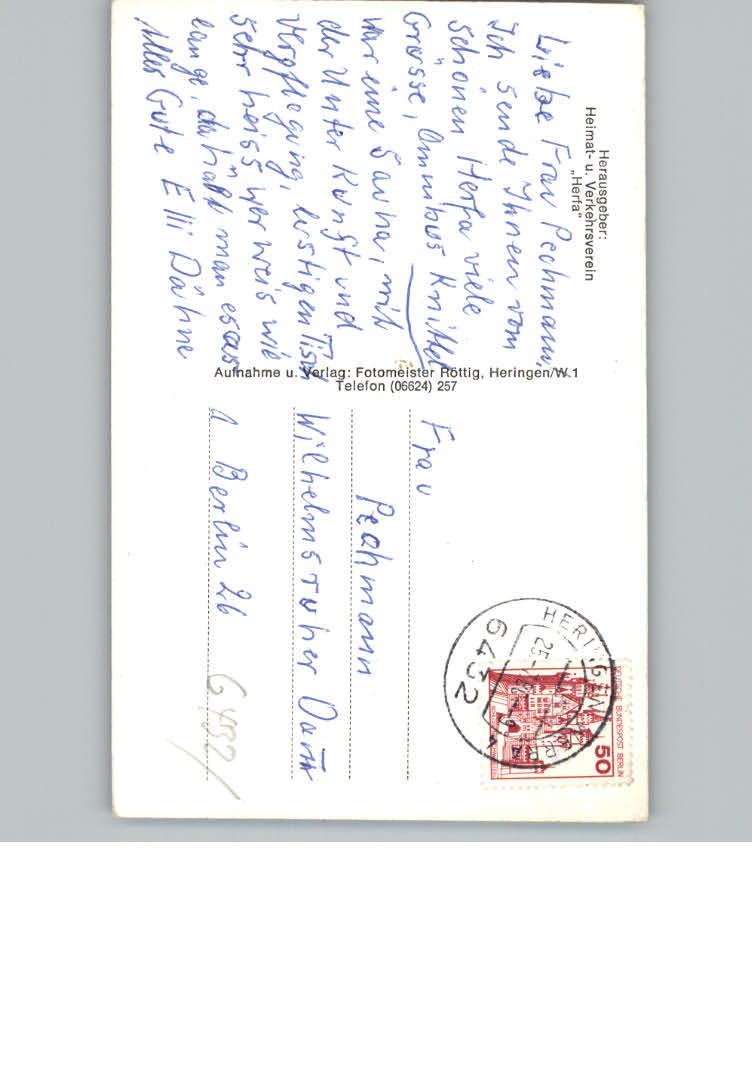 Herausgeber:
Heimat- u. Verkehrsverein
„Herfa“
Liebe Frau Pechmann,
Ich sende Ihnen vom
schönen Herfa viele
Grüsse, Omnibus Knittel
war eine Sauna, mit
der Unterkunft und
Verpflegung, lustigen Tisch
sehr heiss wer weis wie
lange, man es aus
Alles Gute Elli Dähne
Aufnahme u. Verlag: Fotomeister Röttig, Heringen/W.1
Telefon (06624) 257
Frau
Pechmann
Wilhelmsruher Damm
1 Berlin 26
6432
HERINGEN
6432
DEUTSCHE BUNDESPOST BERLIN
50